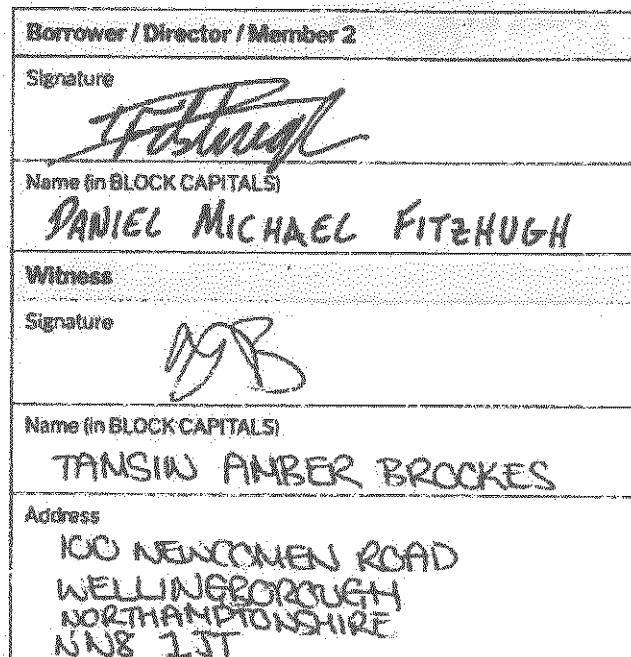 Borrower / Director / Member 2
Signature
Name (in BLOCK CAPITALS)
DANIEL MICHAEL FITZHUGH
Witness
Signature
Name (in BLOCK CAPITALS)
TANSIN AMBER BROCKES
Address
100 NEWCOMEN ROAD
WELLINGBOROUGH
NORTHAMPTONSHIRE
NN8 1JT